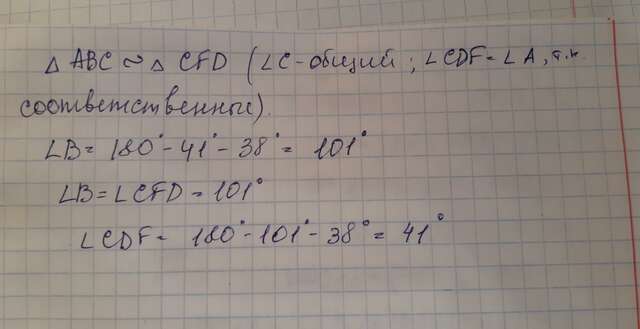 △ ABC ~ △ CFD (∠C-общий; ∠CDF=∠A, т.к.
соответственные).
∠B= 180°-41°-38°= 101°
∠B=∠CFD=101°
∠CDF= 180°-101°-38°= 41°